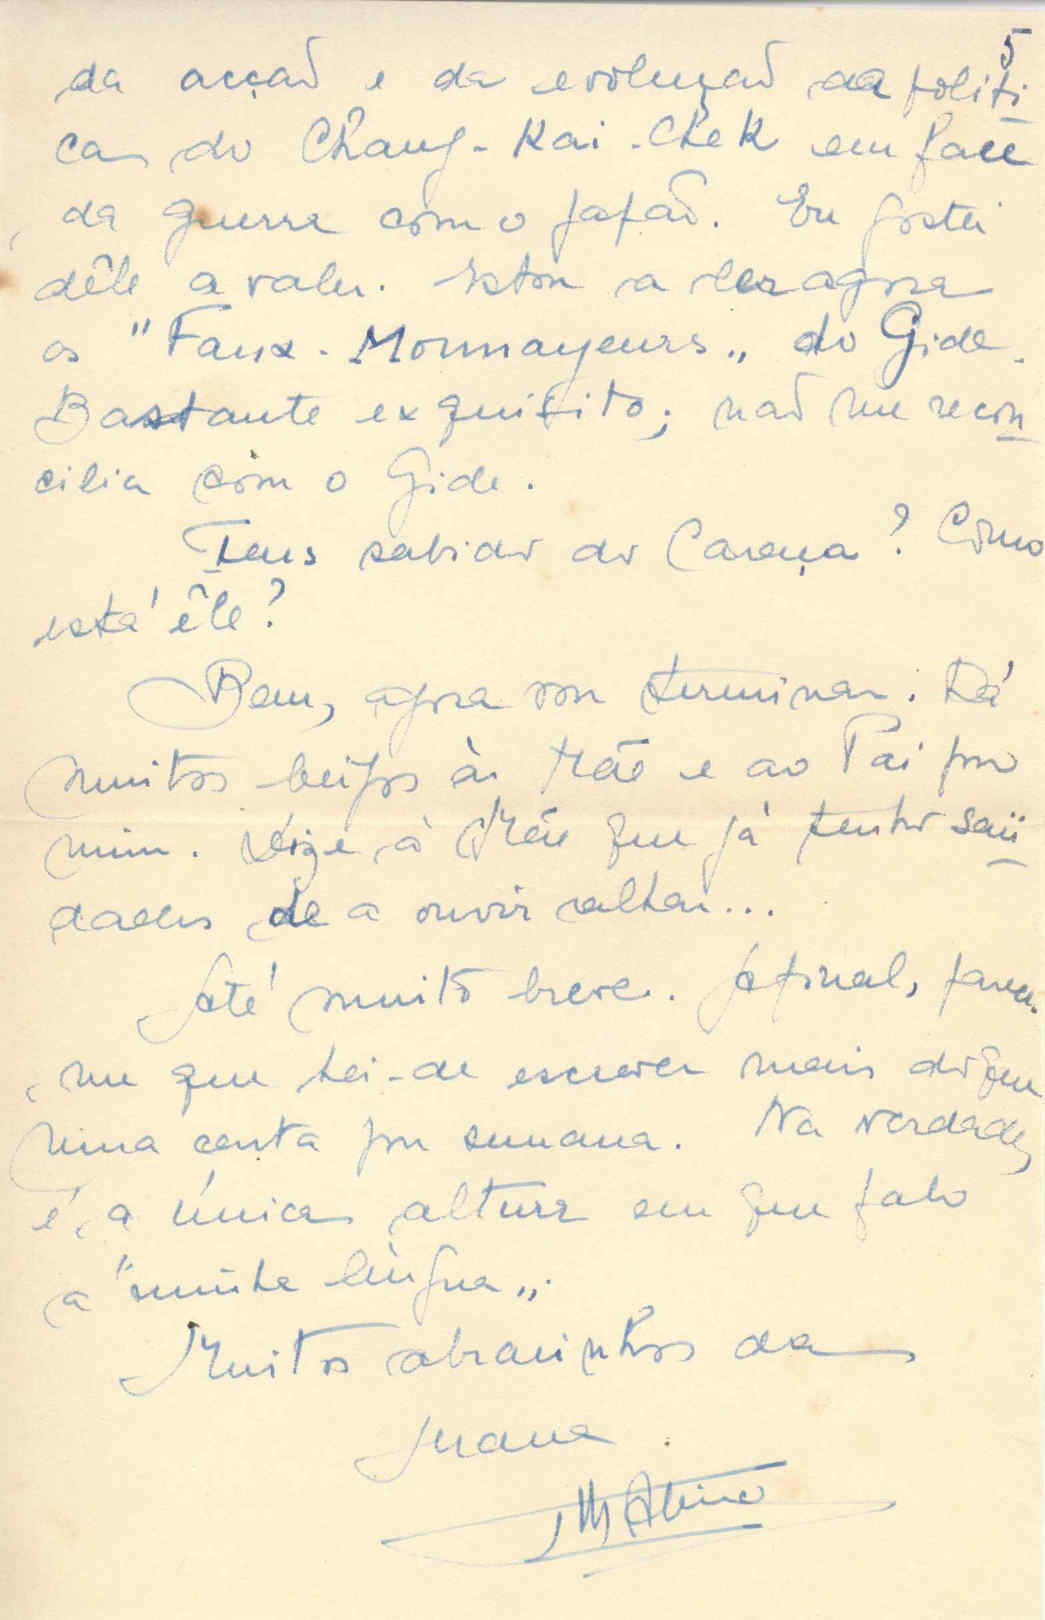 5
da acção e da evolução da politi
ca do Chang-Kai-Chek em face
da guerra com o Japão. Eu gostei
dêle a valer. Estou a ler agora
os "Faux-Monnayeurs" do Gide.
Bastante exquisito; não me recon
cilia com o Gide.
Tens sabido do Caraça? Como
está êle?
Bem, agora vou terminar. Dá
muitos beijos à Mãe e ao Pai por
mim. Dize à Mãe que já tenho saü
dades de a ouvir ralhar...
Até muito breve. Afinal, parece-
me que hei-de escrever mais do que
uma carta por semana. Na verdade,
é a única altura em que falo
a "minha língua".
Muitos abracinhos da